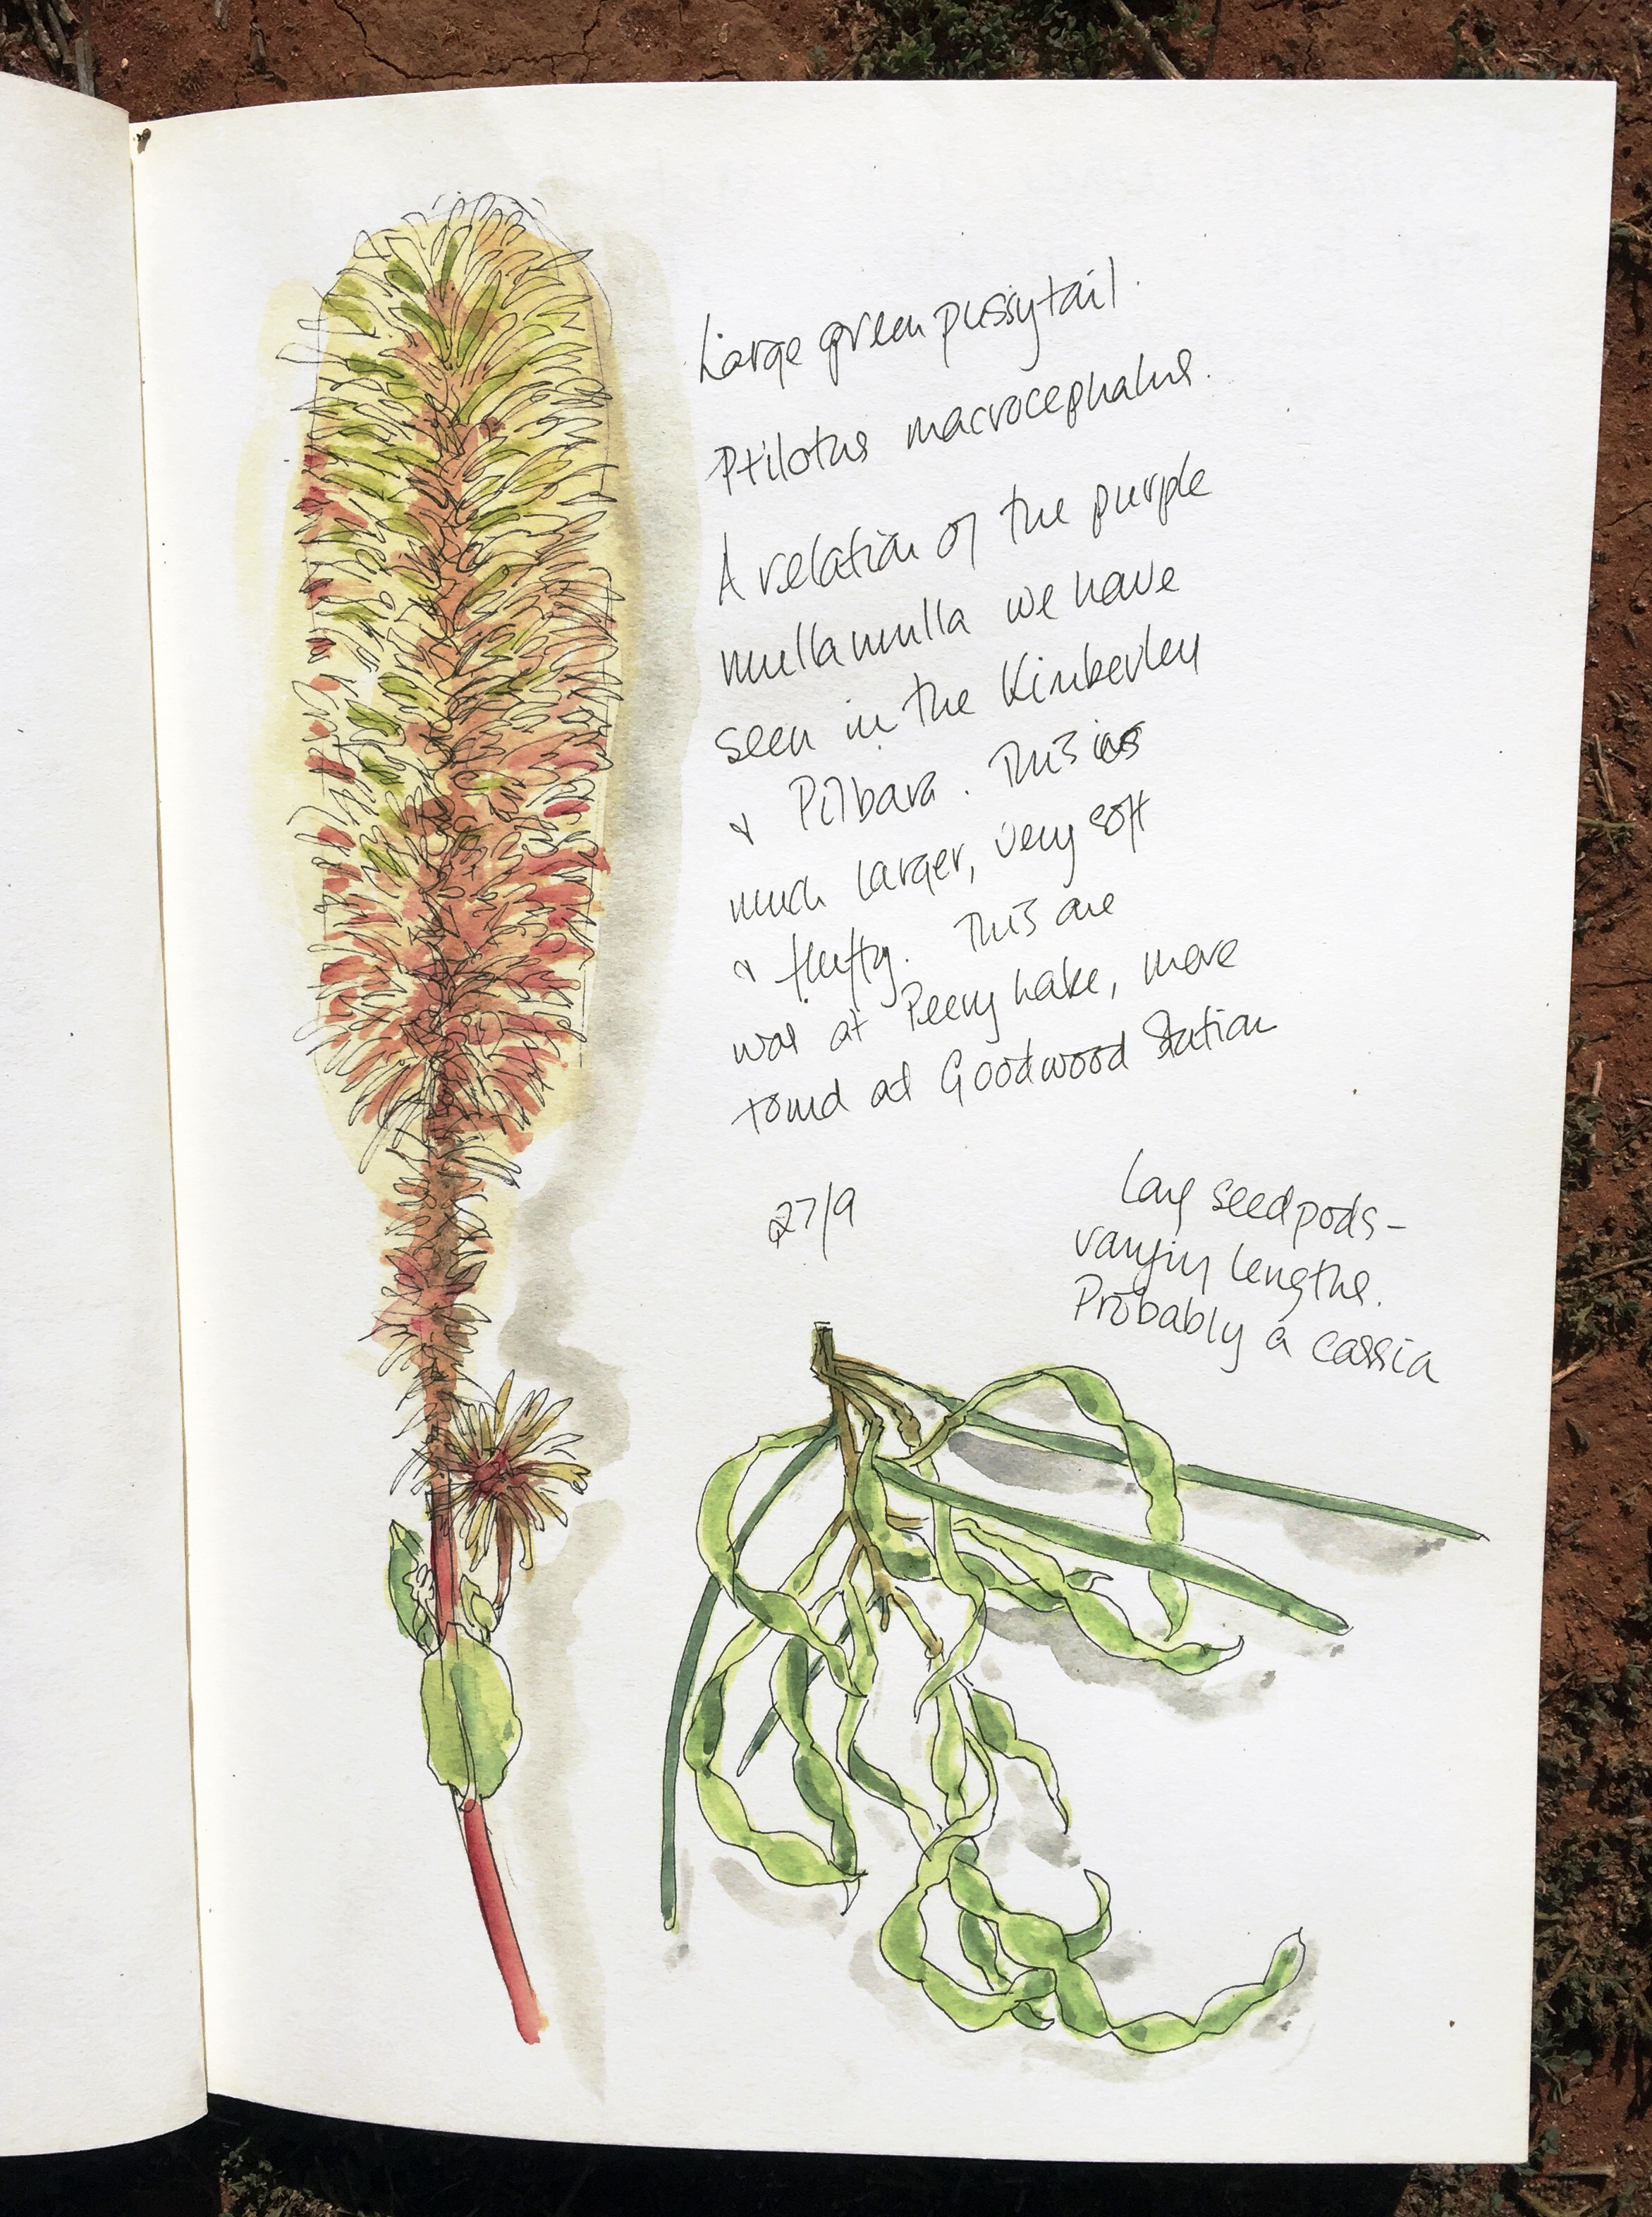 Large green pussytail.
Ptilotus macrocephalus.
A relation of the purple
mulla mulla we have
seen in the Kimberley
& Pilbara. This is
much larger, very soft
& fluffy. This one
was at Peery Lake, more
found at Goodwood Station
27/9
Long seedpods -
varying lengths.
Probably a cassia